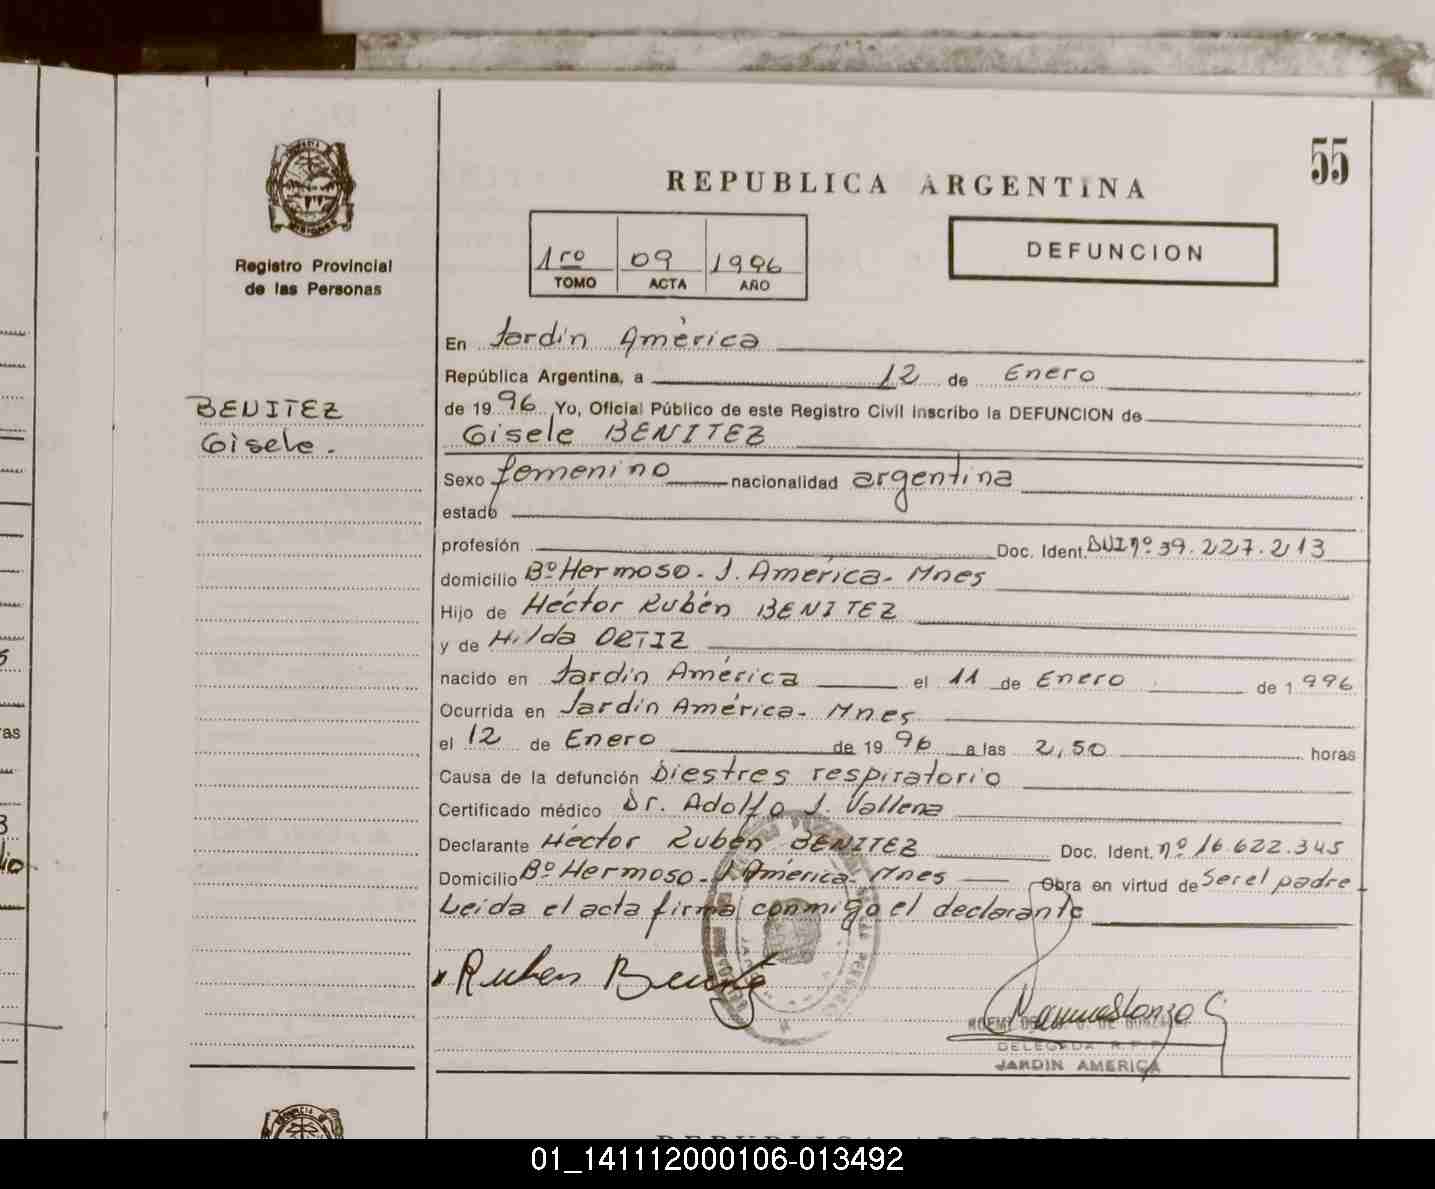 55
REPUBLICA ARGENTINA
Registro Provincial
de las Personas
1ro 09 1996
TOMO ACTA AÑO
DEFUNCION
BENITEZ
Gisele.
En Jardín América
República Argentina, a 12 de Enero
de 1996 Yo, Oficial Público de este Registro Civil inscribo la DEFUNCION de
Gisele BENITEZ
Sexo femenino nacionalidad argentina
estado
profesión Doc. Ident. DNI nº 39.227.213
domicilio Bº Hermoso - J. América - Mnes
Hijo de Héctor Rubén BENITEZ
y de Hilda ORTIZ
nacido en Jardín América el 11 de Enero de 1996
Ocurrida en Jardín América - Mnes
el 12 de Enero de 1996 a las 2,50 horas
Causa de la defunción Diestres respiratorio
Certificado médico Dr. Adolfo J. Vallena
Declarante Héctor Rubén BENITEZ Doc. Ident. nº 16.622.345
Domicilio Bº Hermoso - J. América - Mnes Obra en virtud de ser el padre -
Leída el acta firma conmigo el declarante
Ruben
DELEGADA R.P.P.
JARDIN AMERICA
REPUBLICA ARGENTINA
01_141112000106-013492